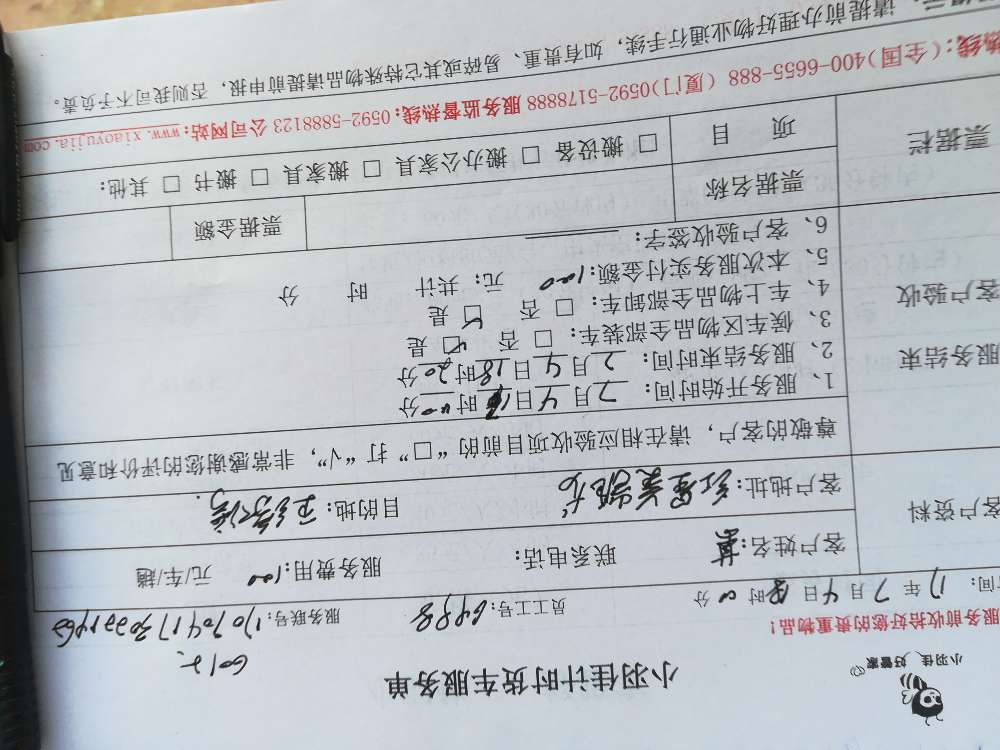 小羽佳 好管家
小羽佳计时货车服务单
服务前收拾好您的贵重物品！
间： 17 年 7 月 4 日 时 00 分 员工工号：6498 服务联号：
客户资料 客户姓名： 联系电话： 服务费用：100 元/车/趟
客户地址： 目的地：
尊敬的客户，请在相应验收项目前的“□”打“√”，非常感谢您的评价和意见
服务结束
客户验收
1、服务开始时间： 7 月 4 日 时 分
2、服务结束时间： 7 月 4 日 18 时 20 分
3、候车区物品全部装车： □ 否 ☑ 是
4、车上物品全部卸车： □ 否 ☑ 是
5、本次服务实付金额：100 元；共计 时 分
6、客户验收签字：
票据栏 票据名称 票据金额
项 目 □ 搬设备 □ 搬办公家具 □ 搬家具 □ 搬书 □ 其他：
热线：（全国）400-6655-888 （厦门）0592-5178888 服务监督热线：0592-5888123 公司网站：www.xiaoyujia.com
请提前办理好物业通行手续，如有贵重、易碎或其它特殊物品请提前申报，否则我司不予负责。